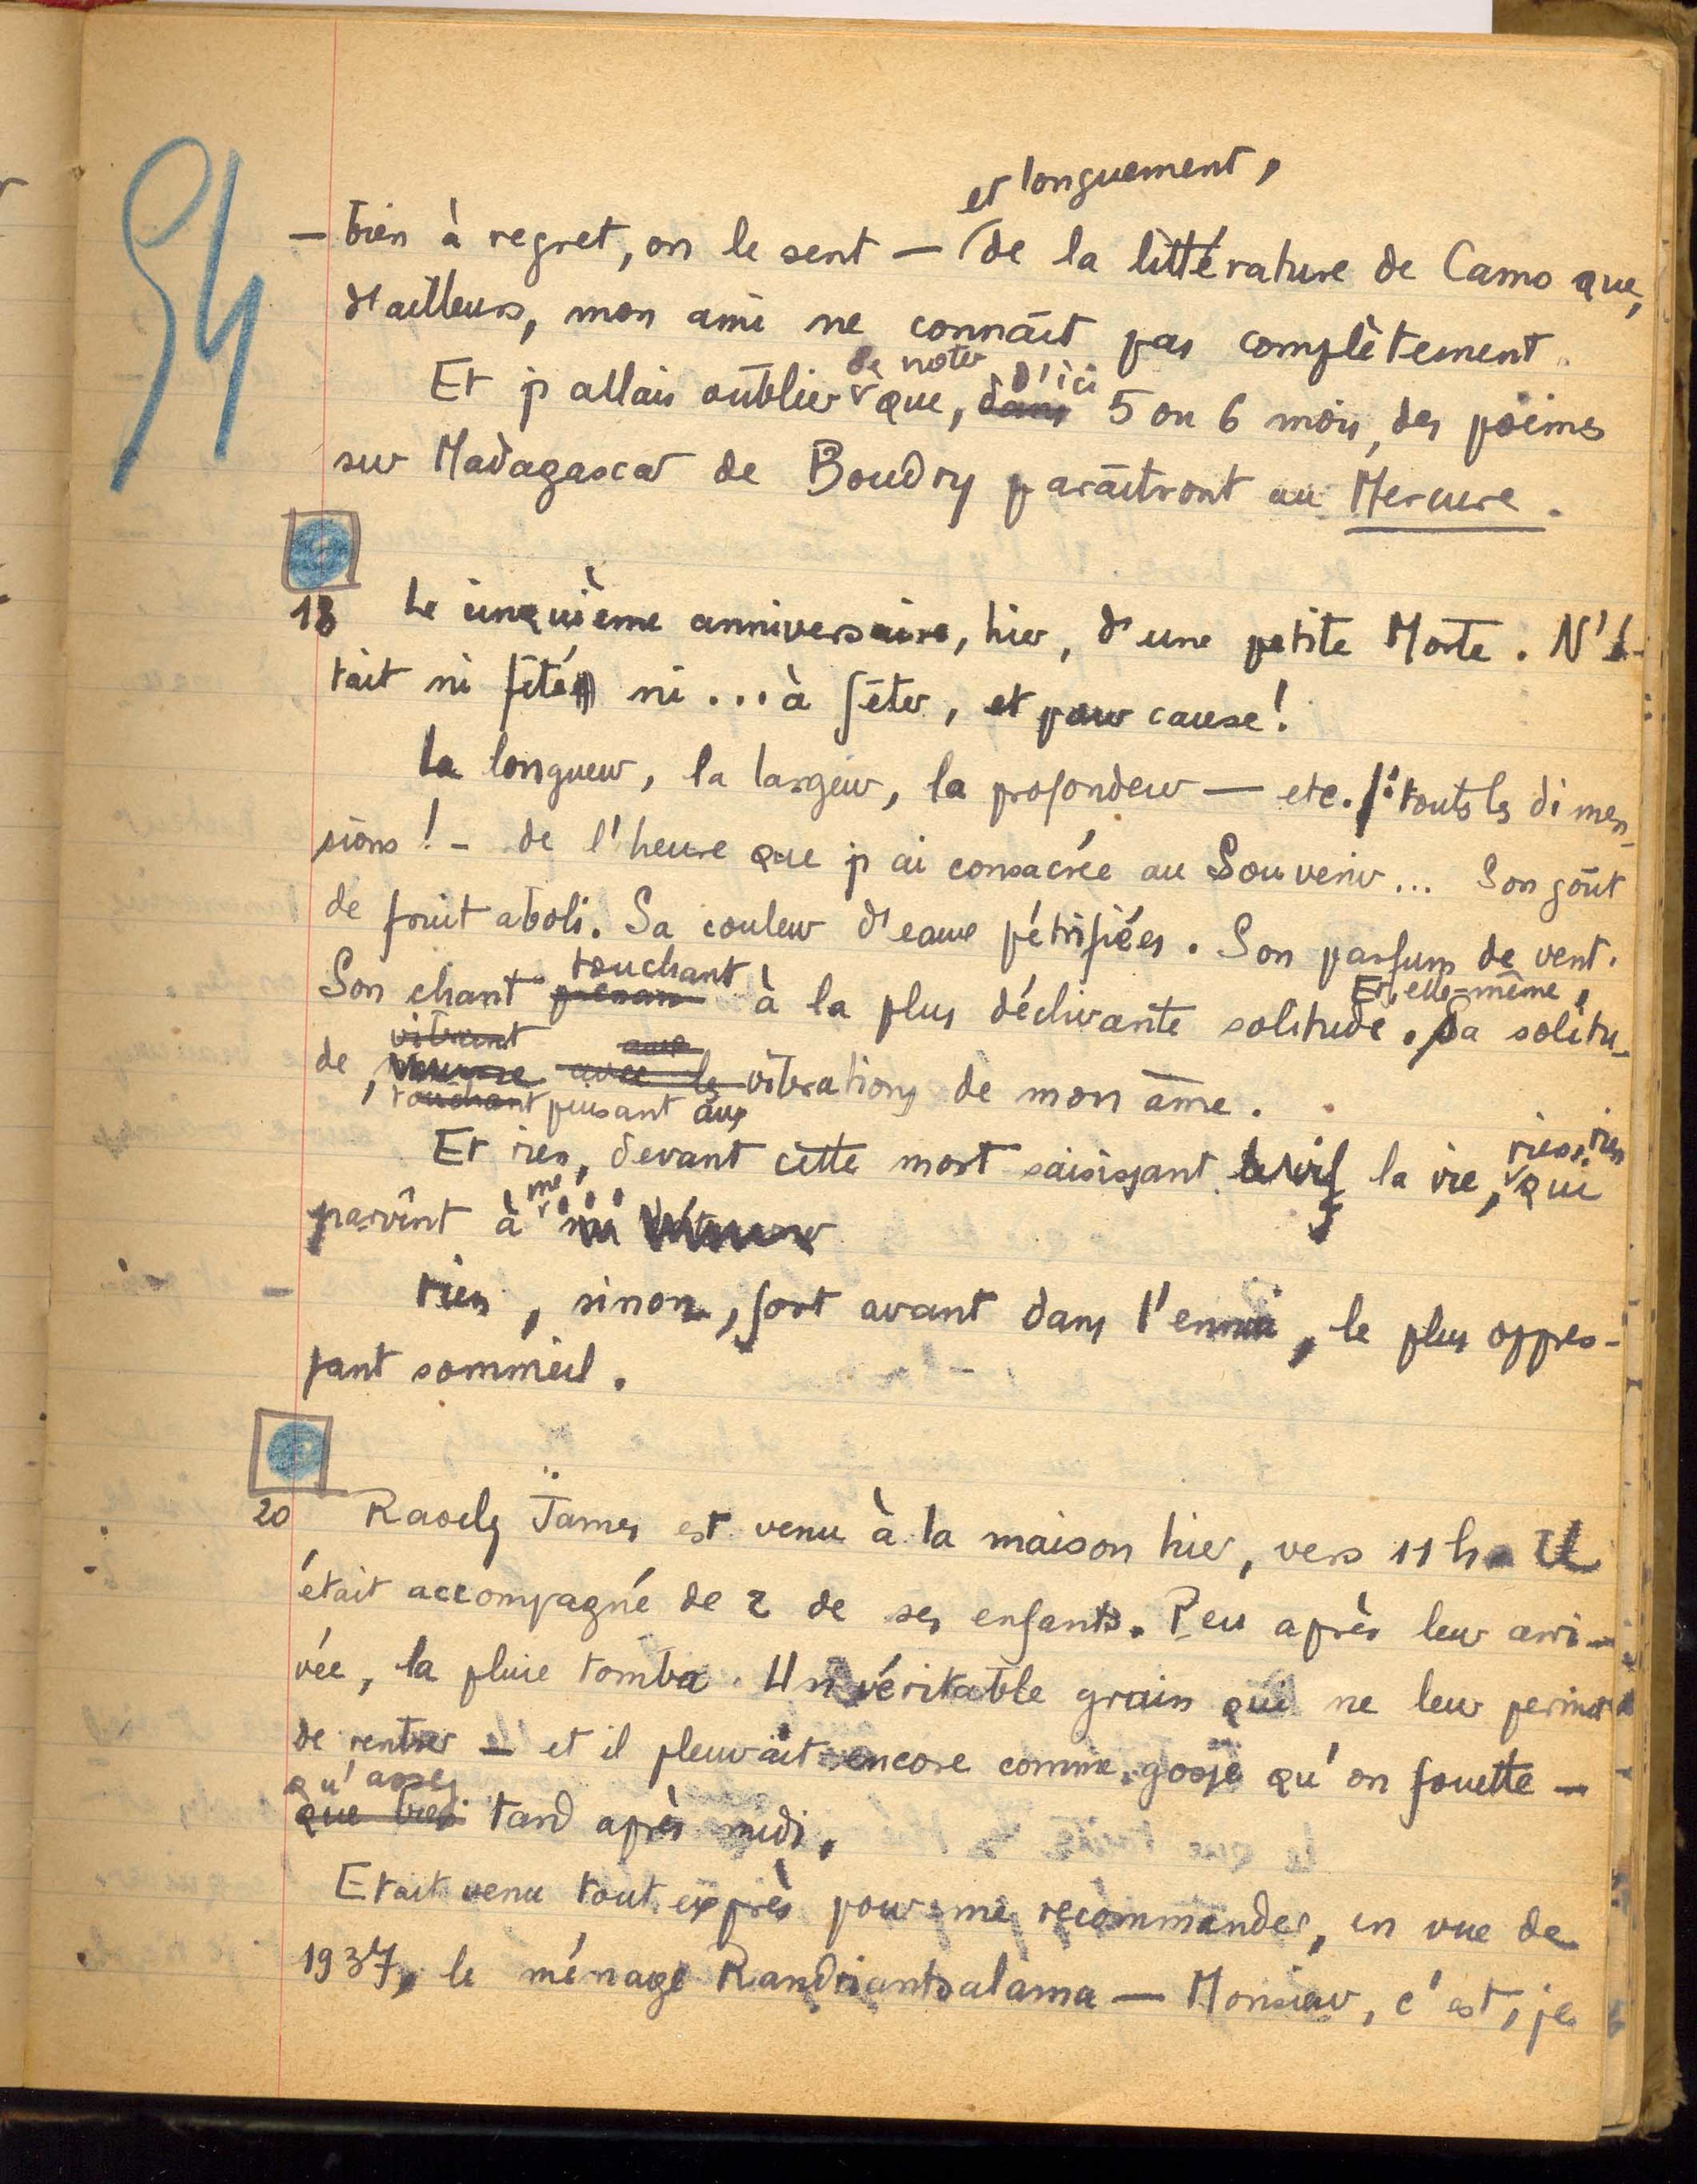 54
et longuement,
— bien à regret, on le sent — (de la littérature de Camo que,
d'ailleurs, mon ami ne connaît pas complètement.
de noter D'ici
Et j'allais oublier que, dans 5 ou 6 mois, des poèmes
sur Madagascar de Boudry paraîtront au Mercure.
18 Le cinquième anniversaire, hier, d'une petite Morte. N'é-
tait ni fêté ni ... à fêter, et pour cause!
La longueur, la largeur, la profondeur — etc. : toutes les dimen-
sions! - de l'heure que j'ai consacrée au Souvenir... Son goût
de fruit aboli. Sa couleur d'eaux pétrifiées. Son parfum de vent.
touchant Et, elle-même,
Son chant prenant à la plus déclivante solitude. Sa solitu-
vibrant aux
de, avec les vibrations de mon âme.
touchant puisant aux
Et rien, devant cette mort saisissant le vif la vie, rien, rien qui
me,
parvînt à ...
rien, sinon, fort avant dans l'ennui, le plus oppres-
sant sommeil.
20 Raoely James est venu à la maison hier, vers 11 h. Il
était accompagné de 2 de ses enfants. Peu après leur arri-
vée, la pluie tomba. Un véritable grain qui ne leur permit
de rentrer — et il pleuvait encore comme gosse qu'on fouette —
qu'assez
que très tard après midi.
Etait venu tout exprès pour me recommander, en vue de
1937, le ménage Randriantsalama — Monsieur, c'est, je